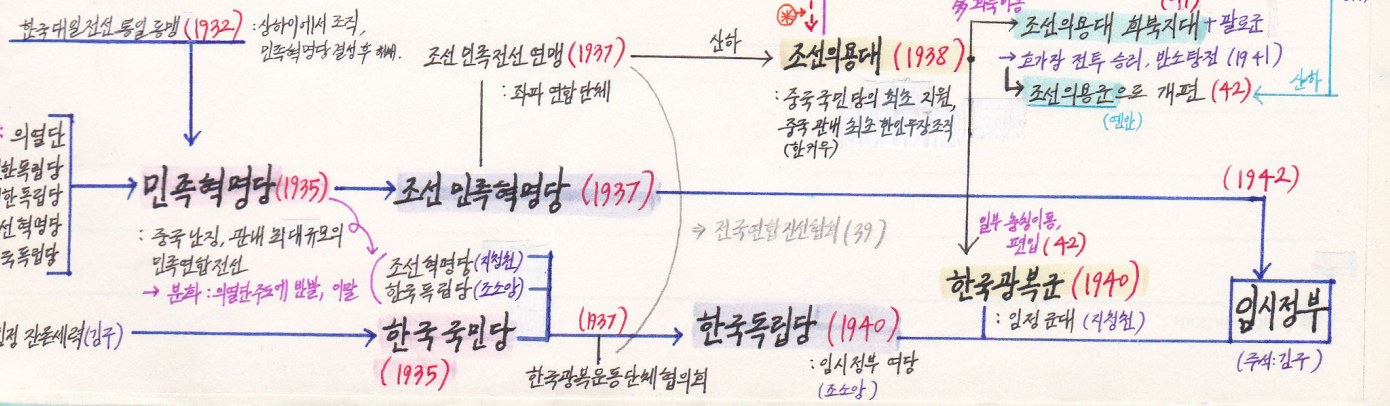 한국대일전선 통일 동맹 (1932)
: 상하이에서 조직,
민족혁명당 결성 후 해체.
조선 민족전선 연맹 (1937)
: 좌파 연합 단체
산하
조선의용대 (1938)
: 중국 국민당의 최초 지원,
중국 관내 최초 한인무장조직
(한커우)
조선의용대 화북지대 + 팔로군
→ 호가장 전투 승리, 반소탕전 (1941)
조선의용군으로 개편 (42)
(옌안)
산하
의열단
한독립당
한독립당
선혁명당
국독립당
민족혁명당 (1935)
: 중국 난징, 관내 최대 규모의
민족연합전선
→ 분화 : 의열단 주도에 반발, 이탈
조선 민족혁명당 (1937)
(1942)
⇒ 전국연합진선협회 (39)
조선혁명당 (지청천)
한국독립당 (조소앙)
일부 충칭이동,
편입 (42)
한국광복군 (1940)
: 임정 군대 (지청천)
임시정부
(주석:김구)
임정 잔류세력 (김구)
한국 국민당
(1935)
(1937)
한국광복운동단체협의회
한국독립당 (1940)
: 임시정부 여당
(조소앙)